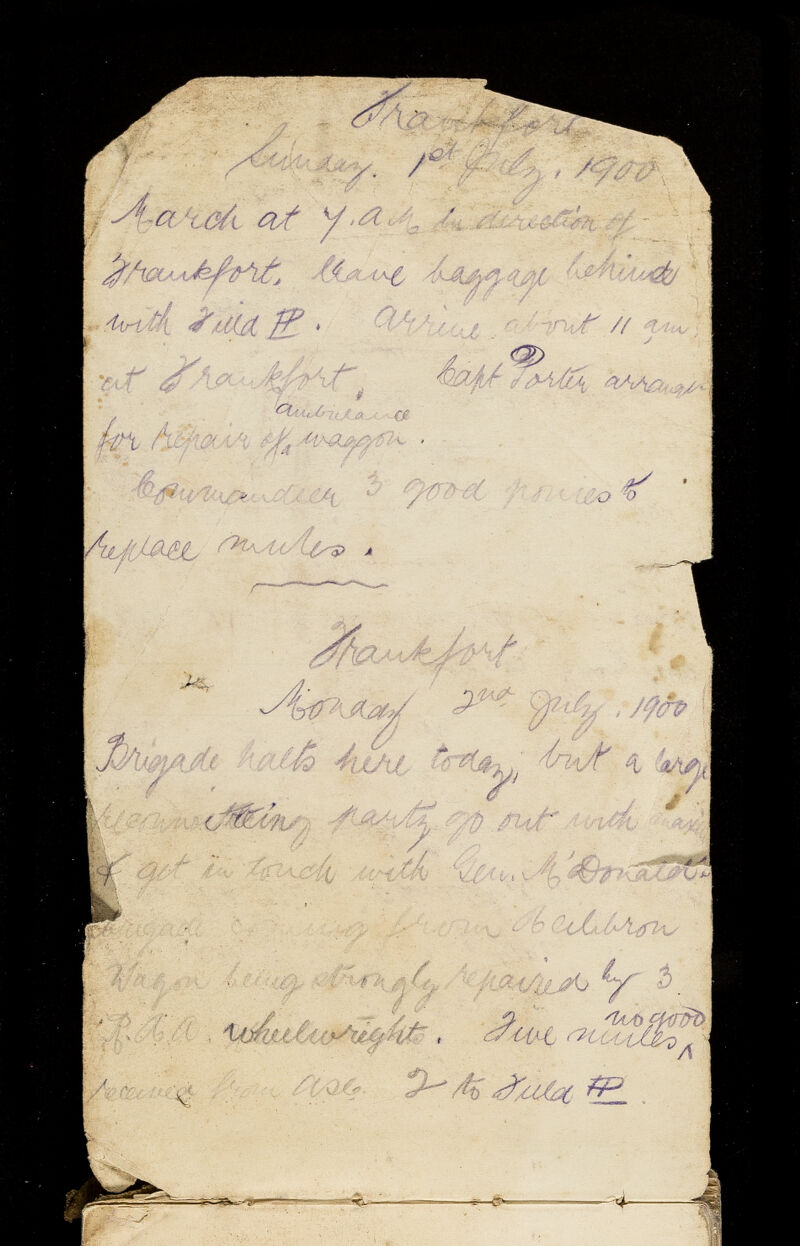 Frankfort
Sunday. 1st July. 1900
March at 7. a.m in direction of
Frankfort. Leave baggage behind
with Field H. Arrive about 11 am
at Frankfort. Capt Porter arranges
ambulance
for repair of a waggon.
Commandeer 3 good ponies to
replace mules.
Frankfort
Monday 2nd July. 1900
Brigade halts here today, but a large
reconnoitreing party go out with maxim
& get in touch with Gen. McDonald's
brigade coming from Heilbron
Wagon being strongly repaired by 3
R.H.A. wheelwrights. Five mules
no good
received from ASC. 2 to Field H.